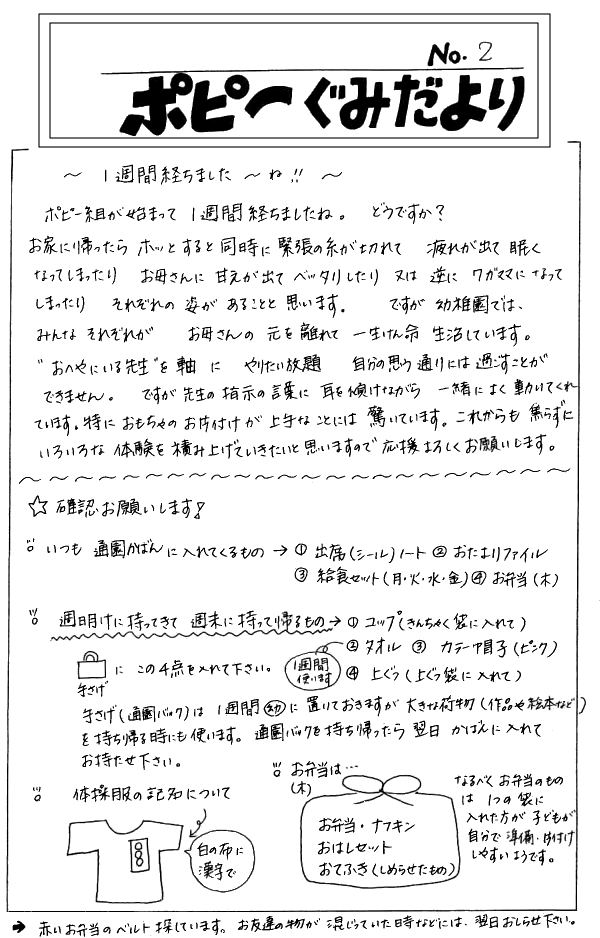 No. 2
ポピーぐみだより
～ 1週間経ちました ～ ね!! ～
ポピー組が始まって 1週間経ちましたね。 どうですか?
お家に帰ったら ホッとすると同時に 緊張の糸が切れて 疲れが出て 眠く
なってしまったり お母さんに 甘えが出て ベッタリしたり 又は 逆に ワガママに なって
しまったり それぞれの 姿が あることと 思います。 ですが 幼稚園では、
みんな それぞれが お母さんの 元を 離れて 一生けん命 生活しています。
"おへやにいる先生"を 軸 に やりたい放題 自分の思う通りには 過ごすことが
できません。 ですが 先生の 指示の言葉に 耳を傾けながら 一緒に よく 動いてくれ
ています。特に おもちゃの お片付けが 上手な ことには 驚いています。これからも 焦らずに
いろいろな 体験を 積み上げていきたいと 思いますので 応援 よろしくお願いします。
☆ 確認お願いします!
いつも 通園かばんに 入れてくるもの → ① 出席(シール)ノート ② おたよりファイル
③ 給食セット(月・火・水・金) ④ お弁当(木)
週明けに持ってきて 週末に持って帰るもの → ① コップ(きんちゃく袋に入れて)
② タオル ③ カラー帽子(ピンク)
手さげ に この4点を入れて下さい。 1週間使います ④ 上ぐつ(上ぐつ袋に入れて)
手さげ(通園バック)は 1週間 幼 に 置いておきますが 大きな荷物(作品や絵本など)
を持ち帰る時にも 使います。 通園バックを持ち帰ったら 翌日 かばんに入れて
お持たせ下さい。
体操服の記名について
白の布に
漢字で
お弁当は…
(木)
お弁当・ナフキン
おはしセット
おてふき(しめらせたもの)
なるべく お弁当のもの
は 1つの 袋に
入れた方が 子どもが
自分で 準備・片付け
しやすいようです。
→ 赤いお弁当のベルト 探しています。 お友達の物が 混じっていた時などには、翌日 おしらせ下さい。